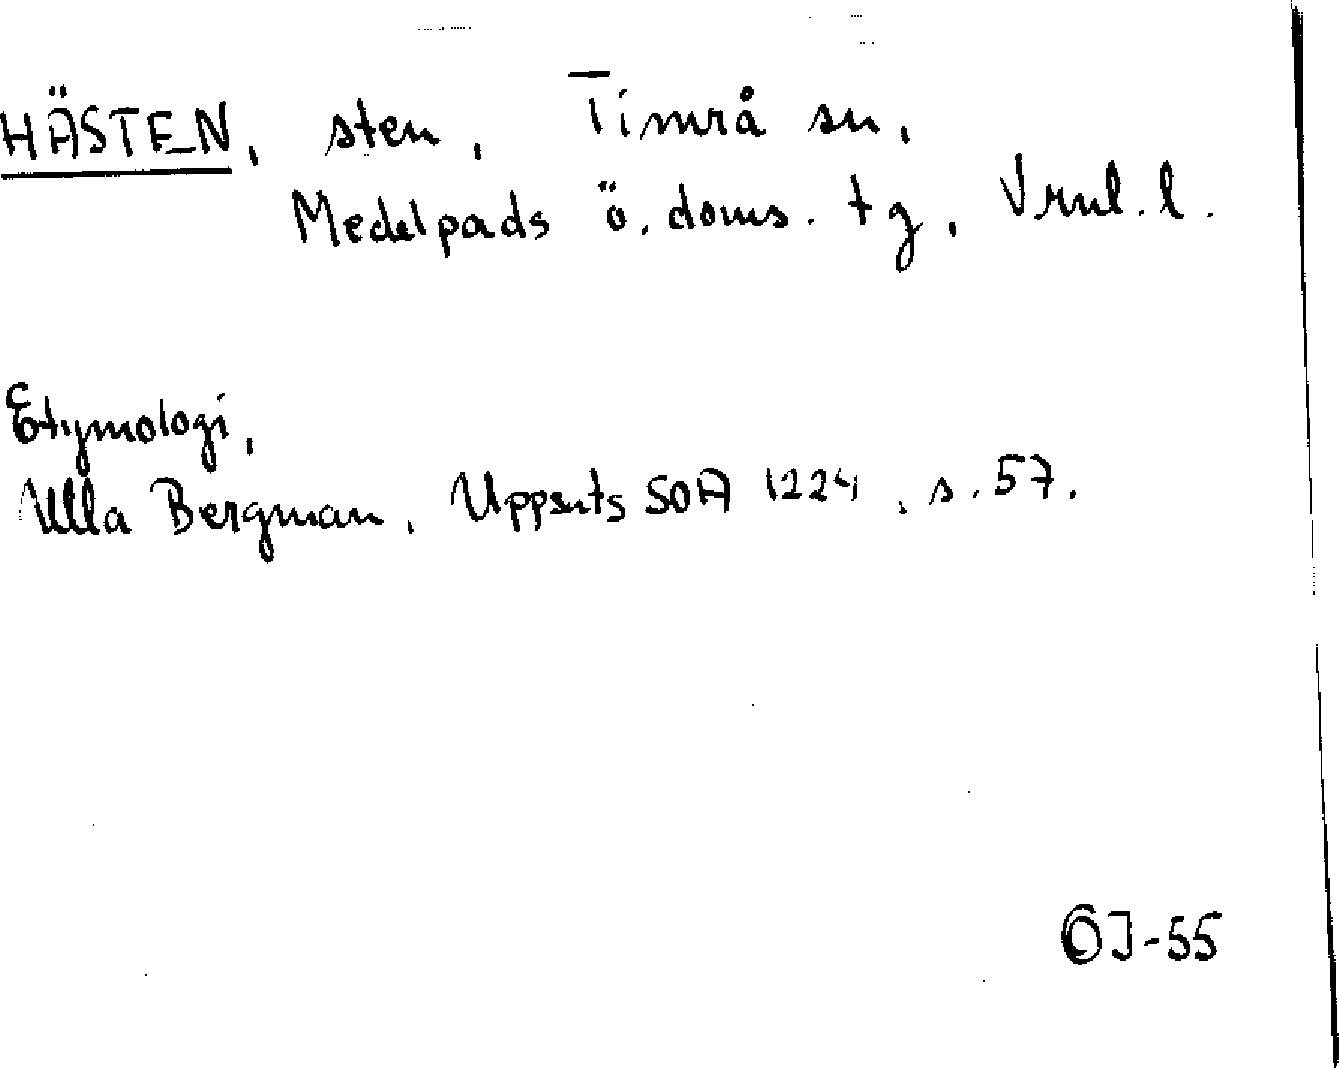 HÄSTEN, sten, Timrå sn,
Medelpads ö. doms. tg, Vrnl. l.
Etymologi,
Ulla Bergman, Uppsats SOA 1224, s. 57.
OJ-55